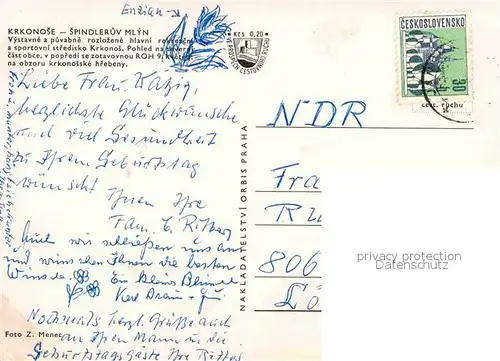 Enzian
KRKONOŠE – ŠPINDLERŮV MLÝN
Výstavné a půvabně rozložené hlavní rekreační
a sportovní středisko Krkonoš. Pohled na severní
část obce, v popředí se zotavovnou ROH 9. května
na obzoru krkonošské hřebeny.
Kčs 0,20
VE PROSPĚCH CESTOVNÍHO RUCHU
ČESKOSLOVENSKO
30
cest. ruchu
Liebe Frau
herzlichste Glückwünsche
und viel Gesundheit
zu Ihrem Geburtstag
wünscht
Ihnen Ihre
Fam. E. Ritberg
Auch wir schließen uns an
und wünschen Ihnen die besten
Wünsche. Ein kleines Blümel
Nochmals herzl. Grüße auch
an Ihren Mann u. die
Geburtstagsgäste Ihre
Foto Z. Mene
NAKLADATELSTVÍ ORBIS PRAHA
NDR
Fra
Ru
806
Lö
privacy protection
Datenschutz